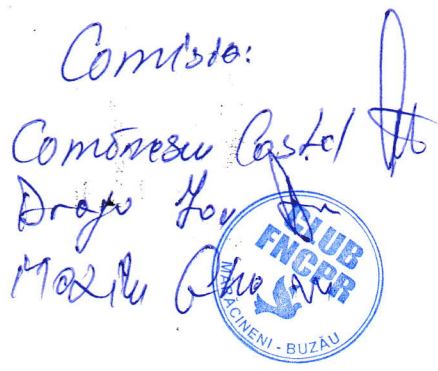 Comisia:
Comănescu Costel
Dragu Ion
Mazilu
CLUB
FNCPR
MĂRĂCINENI - BUZĂU